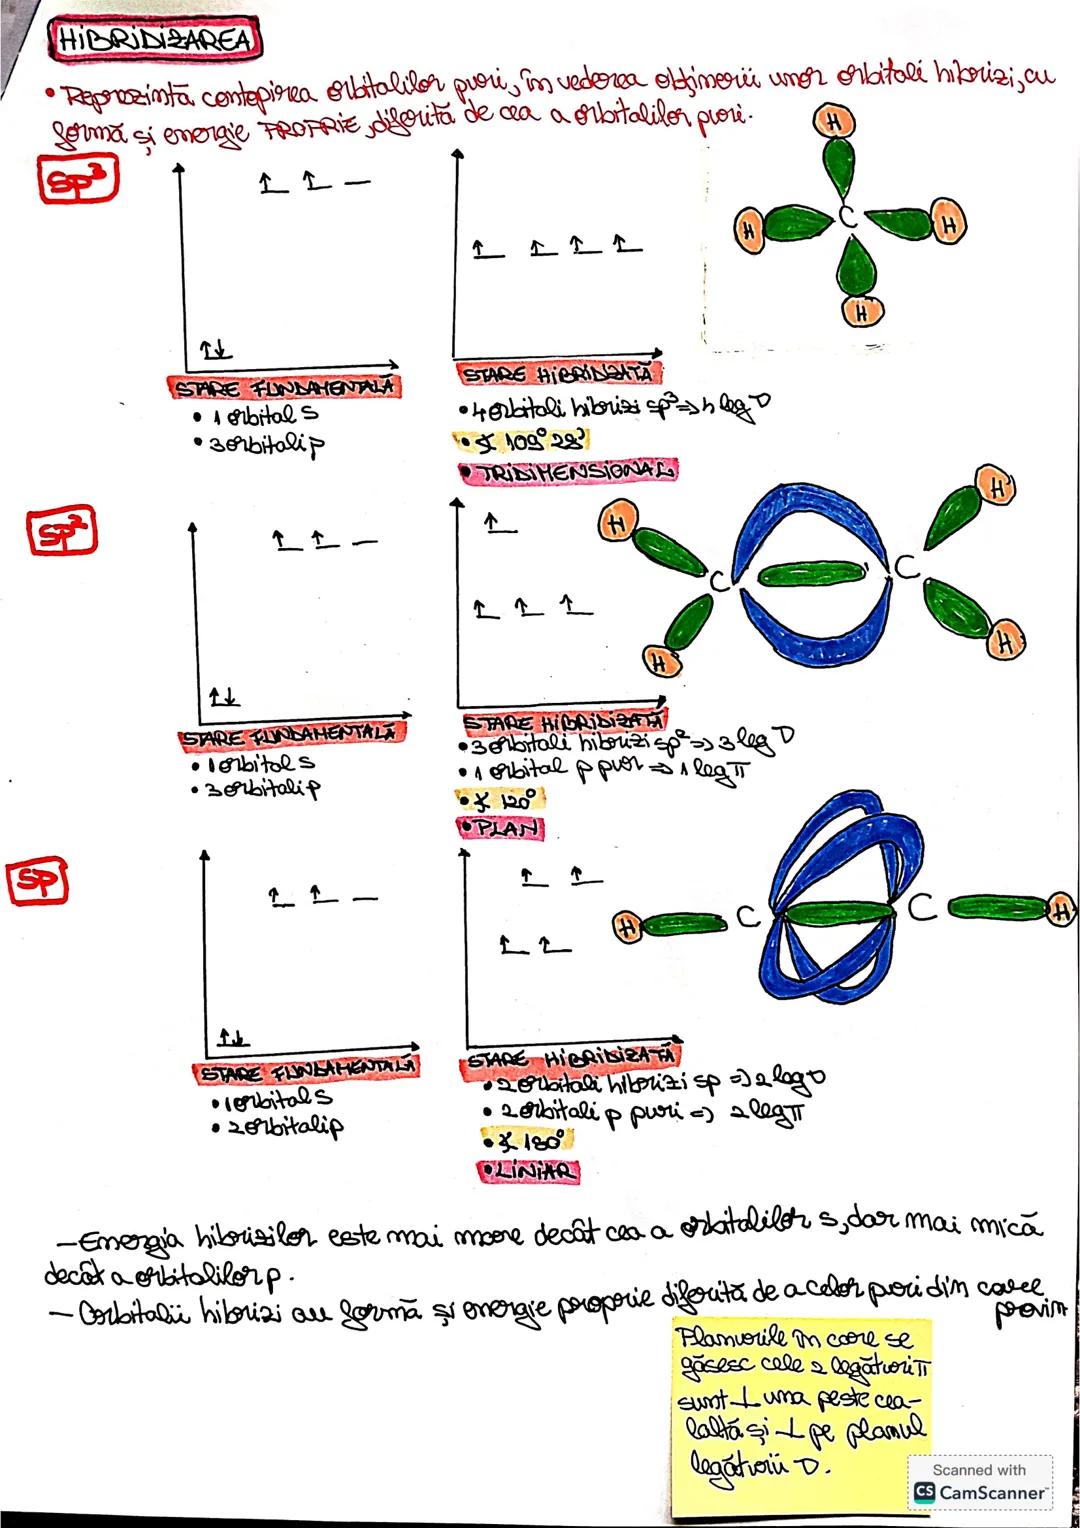 HIBRIDIZAREA
• Reprezintă contopirea orbitalilor puri, în vederea obținerii unor orbitali hibrizi, cu
formă și energie PROPRIE, diferită de cea a orbitalilor puri.
sp³
STARE FUNDAMENTALĂ
• 1 orbital s
• 3 orbitali p
STARE HIBRIDIZATĂ
• 4 orbitali hibrizi sp³ => 4 leg σ
• ∢ 109° 28'
• TRIDIMENSIONAL
H
H
C
H
H
sp²
STARE FUNDAMENTALĂ
• 1 orbital s
• 3 orbitali p
STARE HIBRIDIZATĂ
• 3 orbitali hibrizi sp² => 3 leg σ
• 1 orbital p pur => 1 leg π
• ∢ 120°
• PLAN
H
H
C
C
H
H
sp
STARE FUNDAMENTALĂ
• 1 orbital s
• 2 orbitali p
STARE HIBRIDIZATĂ
• 2 orbitali hibrizi sp => 2 leg σ
• 2 orbitali p puri => 2 leg π
• ∢ 180°
• LINIAR
H
C
C
H
— Energia hibrizilor este mai mare decât cea a orbitalilor s, dar mai mică
decât a orbitalilor p.
— Orbitalii hibrizi au formă și energie proprie diferită de a celor puri din care
provin
Planurile în care se
găsesc cele 2 legături π
sunt ⊥ una peste cea-
laltă și ⊥ pe planul
legăturii σ.
Scanned with
CS CamScanner